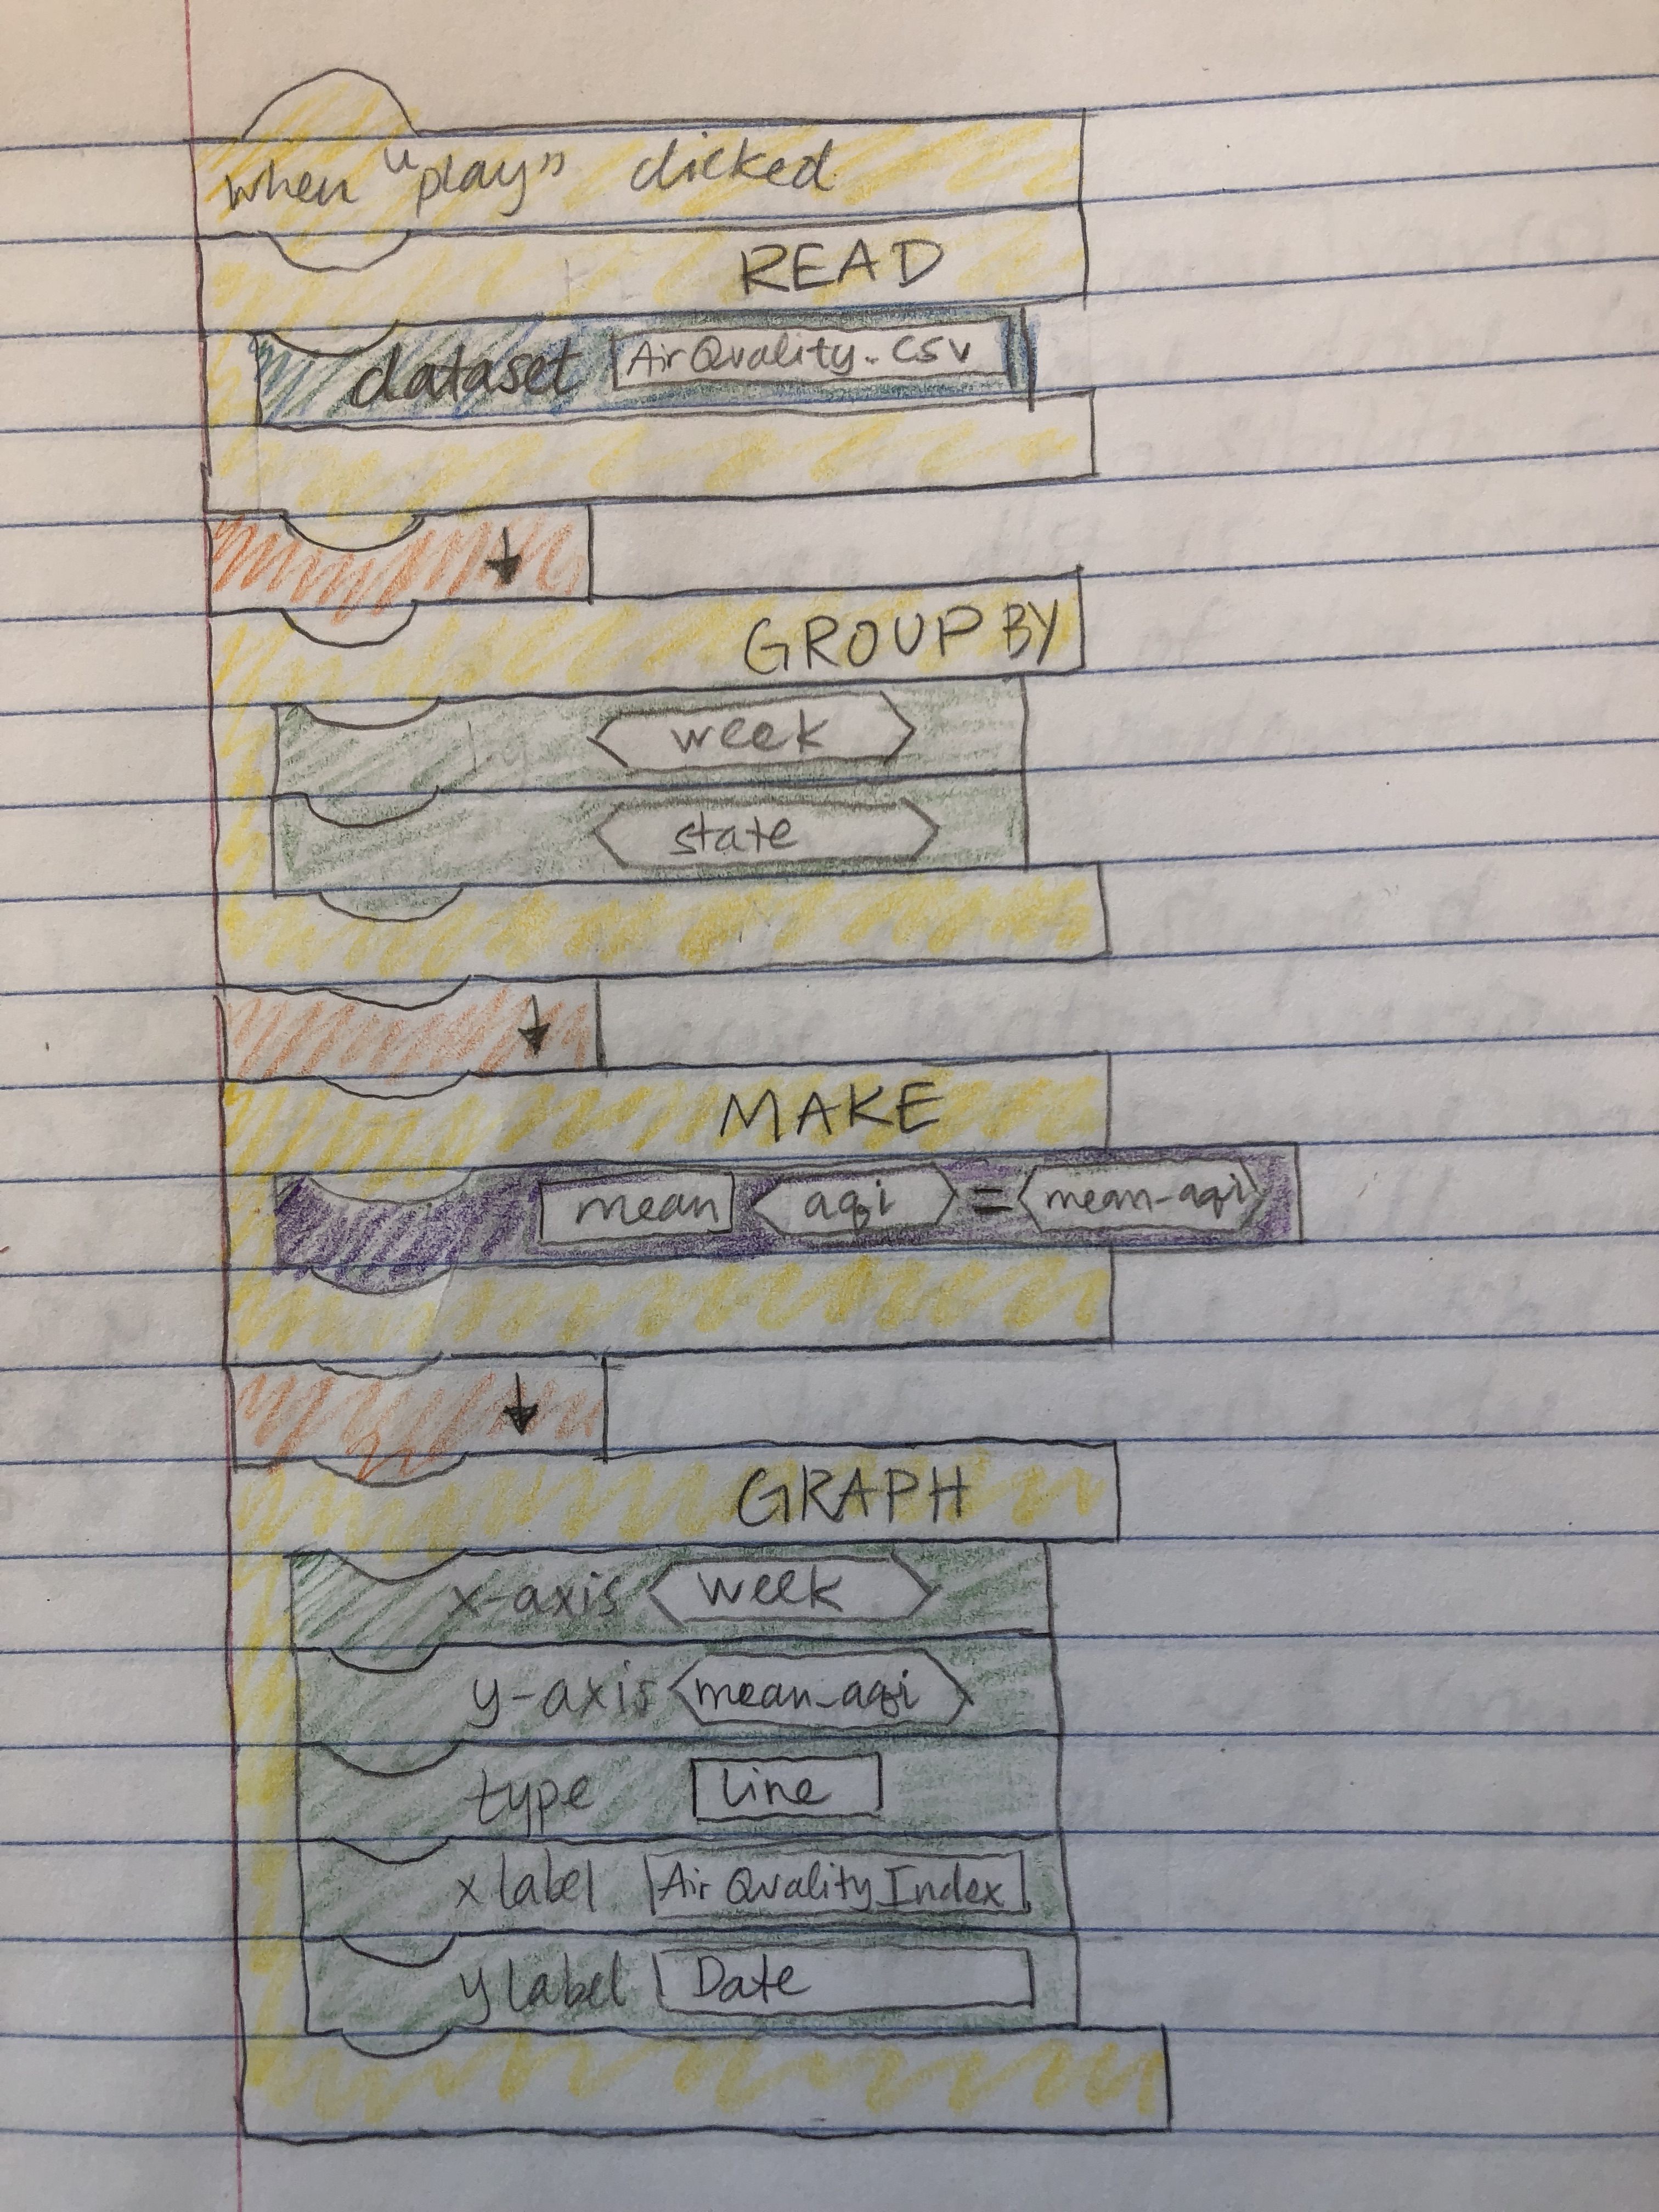 when "play" clicked
READ
dataset AirQuality.csv
↓
GROUP BY
week
state
↓
MAKE
mean aqi = mean-aqi
↓
GRAPH
x-axis week
y-axis mean_aqi
type line
x label Air Quality Index
y label Date